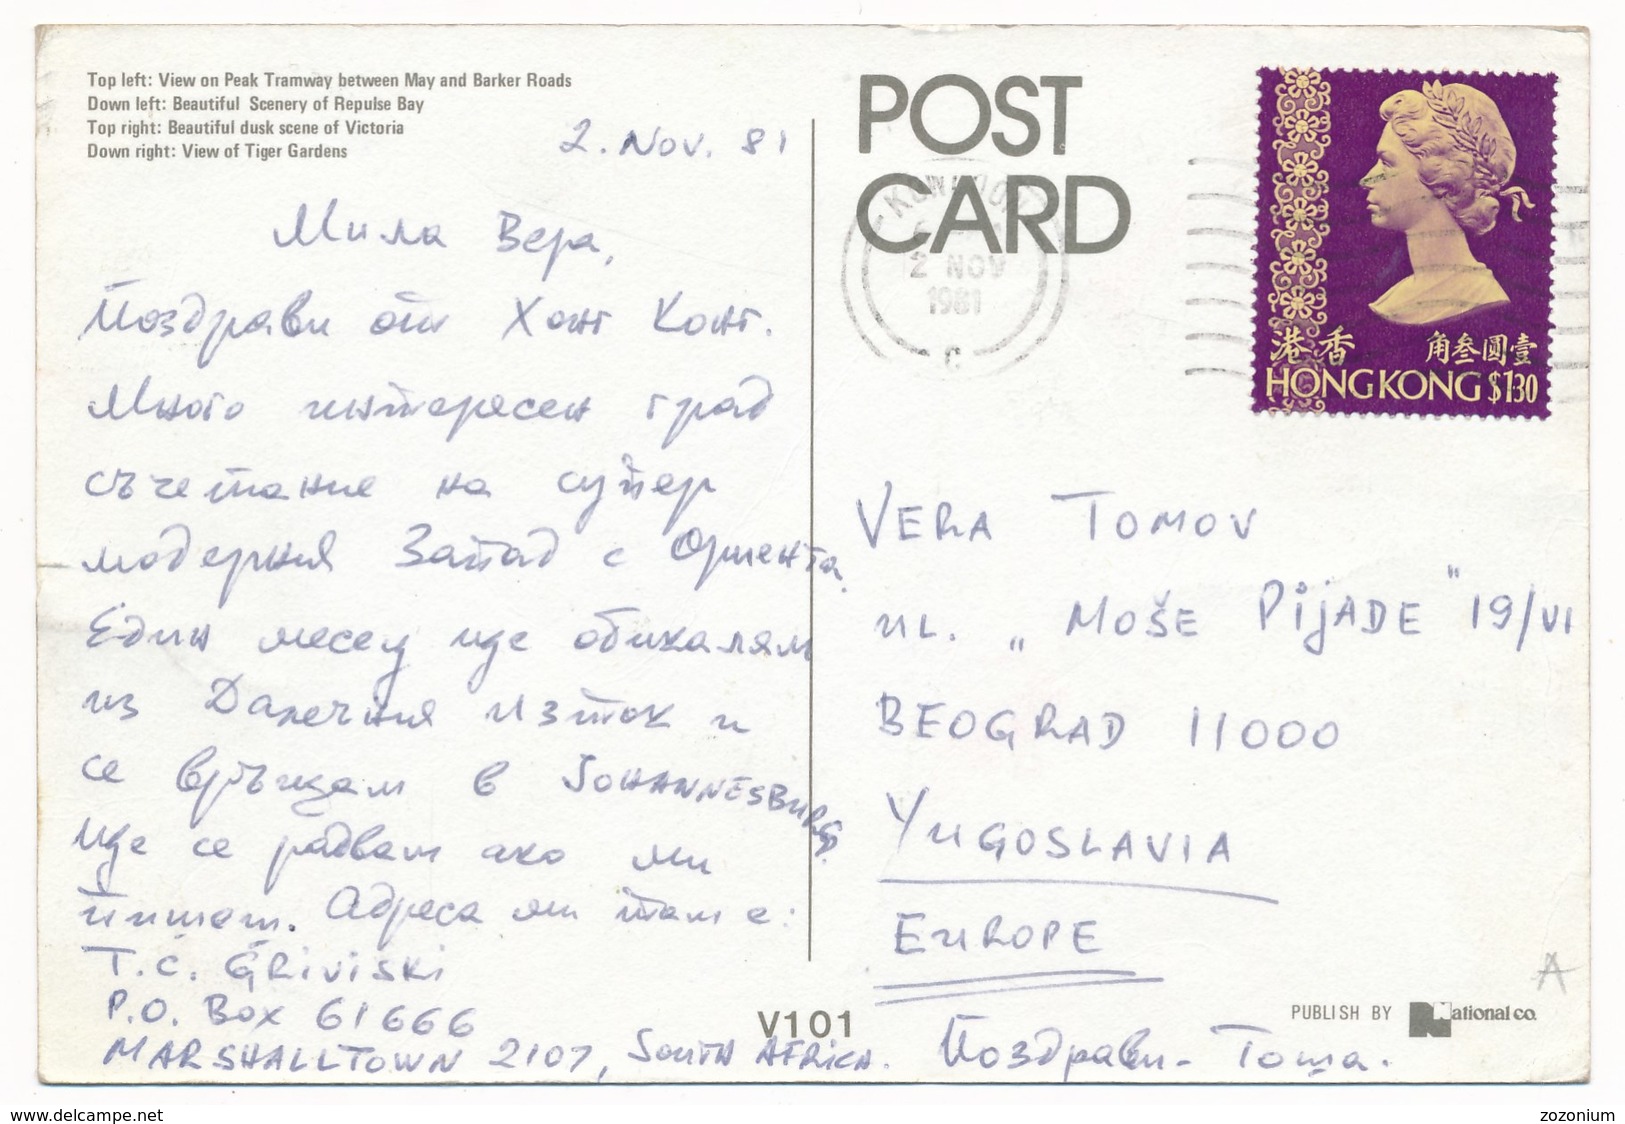 Top left: View on Peak Tramway between May and Barker Roads
Down left: Beautiful Scenery of Repulse Bay
Top right: Beautiful dusk scene of Victoria
Down right: View of Tiger Gardens
2. Nov. 81
Мила Вера,
Поздрави от Хонг Конг.
Много интересен град
съчетание на супер
модерния Запад с Ориента.
Един месец ще обикалям
из Далечния Изток и
се връщам в JOHANNESBURG.
Ще се радвам ако ми
пишеш. Адреса ми там е:
T.C. GRIVISKI
P.O. Box 61666
MARSHALLTOWN 2107, SOUTH AFRICA.
Поздрави - Тоша.
POST
CARD
KOWLOON
2 NOV
1981
C
港香
角叁圓壹
HONG KONG $1.30
VERA TOMOV
UL. „MOŠE PIJADE" 19/VI
BEOGRAD 11000
YUGOSLAVIA
EUROPE
A
V101
PUBLISH BY National co.
www.delcampe.net
zozonium